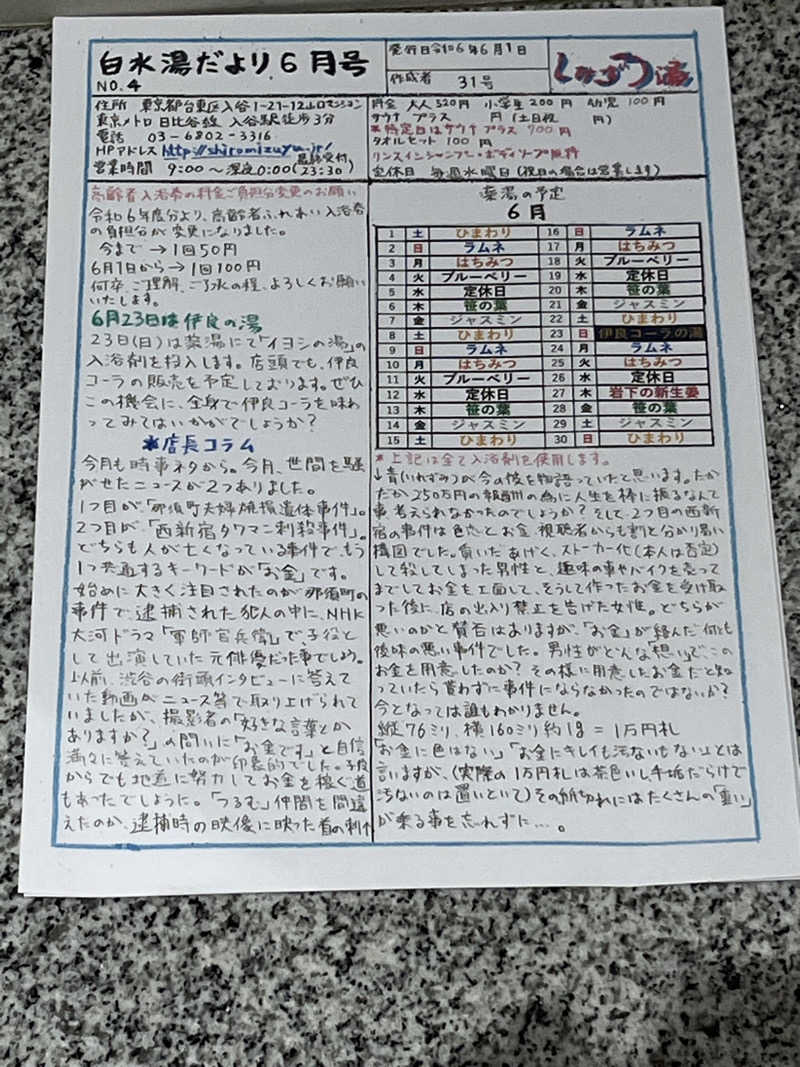 白水湯だより6月号
NO.4
発行日令和6年6月1日
作成者 31号
住所 東京都台東区入谷1-21-12
東京メトロ 日比谷線 入谷駅徒歩3分
電話 03-6802-3316
HPアドレス http://shiromizuyu.jp/
営業時間 9:00〜深夜0:00(最終受付23:30)
料金 大人520円 小学生200円 幼児100円
サウナ プラス 円(土日祝 円)
*特定日はサウナプラス700円
タオルセット100円
リンスインシャンプー・ボディソープ無料
定休日 毎週水曜日(祝日の場合は営業します)
高齢者入浴券の料金ご負担分変更のお願い
令和6年度分より、高齢者ふれあい入浴券
の負担分が変更になりました。
今まで→1回50円
6月1日から→1回100円
何卒、ご理解、ご了承の程、よろしくお願い
いたします。
6月23日は伊良の湯
23日(日)は薬湯にて「イヨシの湯」の
入浴剤を投入します。店頭でも、伊良
コーラの販売を予定しております。ぜひ
この機会に、全身で伊良コーラを味わ
ってみてはいかがでしょうか?
*店長コラム
今月も時事ネタから。今月、世間を騒
がせたニュースが2つありました。
1つ目が、「那須町夫婦焼損遺体事件」。
2つ目が、「西新宿タワマン刺殺事件」。
どちらも人が亡くなっている事件で、もう
1つ共通するキーワードが「お金」です。
始めに大きく注目されたのが那須町の
事件で、逮捕された犯人の中に、NHK
大河ドラマ「軍師官兵衛」で子役と
して出演していた元俳優だった事でしょう。
以前、渋谷の街頭インタビューに答えて
いた動画がニュース等で取り上げられて
いましたが、撮影者の「好きな言葉とか
ありますか?」の問いに「お金です」と自信
満々に答えていたのが印象的でした。子役
からでも地道に努力してお金を稼ぐ道
もあったでしょうに。「つるむ」仲間を間違
えたのか、逮捕時の映像に映った首の刺↑
薬湯の予定
6月
1 土 ひまわり 16 日 ラムネ
2 日 ラムネ 17 月 はちみつ
3 月 はちみつ 18 火 ブルーベリー
4 火 ブルーベリー 19 水 定休日
5 水 定休日 20 木 笹の葉
6 木 笹の葉 21 金 ジャスミン
7 金 ジャスミン 22 土 ひまわり
8 土 ひまわり 23 日 伊良コーラの湯
9 日 ラムネ 24 月 ラムネ
10 月 はちみつ 25 火 はちみつ
11 火 ブルーベリー 26 水 定休日
12 水 定休日 27 木 岩下の新生姜
13 木 笹の葉 28 金 笹の葉
14 金 ジャスミン 29 土 ジャスミン
15 土 ひまわり 30 日 ひまわり
*上記は全て入浴剤を使用します。
↓青(いれずみ)が今の彼を物語っていたと思います。たか
だか250万円の報酬の為に人生を棒に振るなんて
事考えられなかったのでしょうか?そして、2つ目の西新
宿の事件は色恋とお金、視聴者からも割と分かり易い
構図でした。貢いだあげく、ストーカー化(本人は否定)
して殺してしまった男性と、趣味の車やバイクを売って
までしてお金を工面して、そうして作ったお金を受け取
った後に、店の出入り禁止を告げた女性。どちらが
悪いのかと賛否はありますが、「お金」が絡んだ何とも
後味の悪い事件でした。男性がどんな想いでこの
お金を用意したのか?その様に用意したお金だと知
っていたら貰わずに事件にならなかったのではないか?
今となっては誰もわかりません。
縦76ミリ、横160ミリ約1g=1万円札
「お金に色はない」「お金にキレイも汚いもない」とは
言いますが、(実際の1万円札は茶色いし手垢だらけで
汚ないのは置いといて)その紙切れにはたくさんの「重い」
が乗る事を忘れずに…。